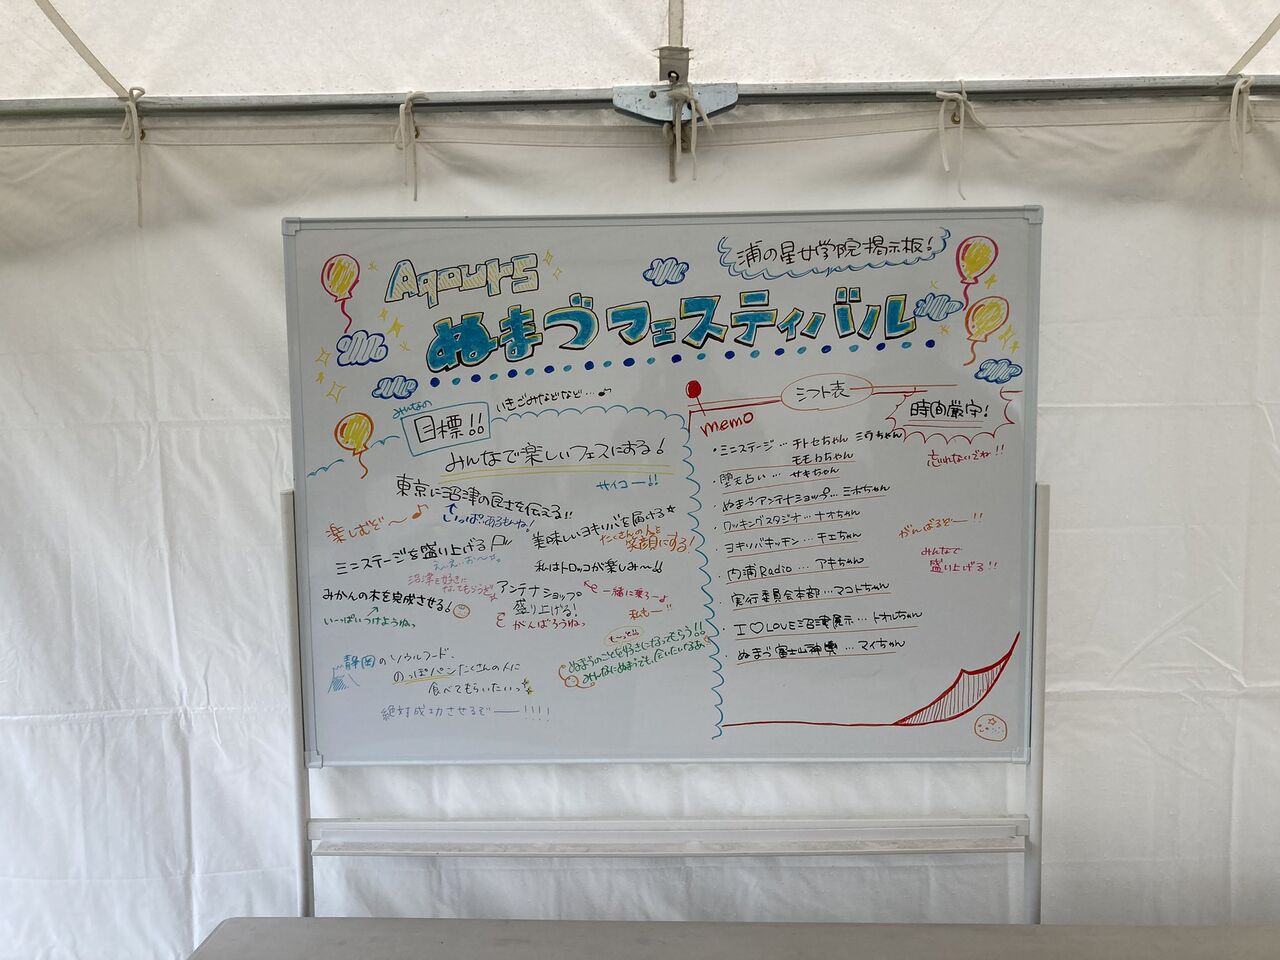 浦の星女学院掲示板!
Aqours
ぬまづフェスティバル
みんなの
目標!!
いきごみなどなど…♪
みんなで楽しいフェスにする!
サイコー!!
東京に沼津の良さを伝える!!
いっぱいあるもんね!
楽しむぞ〜♪
美味しいヨキソバを届ける★
たくさんの人を
笑顔にする!
ミニステージを盛り上げる
えい、えい、おー
私はトロッコが楽しみ〜!!
一緒に乗ろーよ
私もー
沼津を好きに
なってもらうぞ
みかんの木を完成させる!
いーっぱいつけようねっ
アンテナショップ
盛り上げる!
がんばろうねっ
静岡のソウルフード、
のっぽパンたくさんの人に
食べてもらいたいっ
も〜っと
ぬまづのことを好きになってもらう!!
みんなにぬまづでも、会いたいなあ
絶対成功させるぞ――!!!!
シフト表
memo
時間厳守!
忘れないでね!!
・ミニステージ…チトセちゃん ミウちゃん
モモカちゃん
・堕天占い… サキちゃん
・ぬまづアンテナショップ…ミホちゃん
・クッキングスタジオ…ナオちゃん
・ヨキソバキッチン…チエちゃん
・内浦Radio…アキちゃん
・実行委員会本部…マコトちゃん
・I♡LOVE沼津展示…トオルちゃん
・ぬまづ富士山神輿…マイちゃん
がんばるぞー!!
みんなで
盛り上げる!!